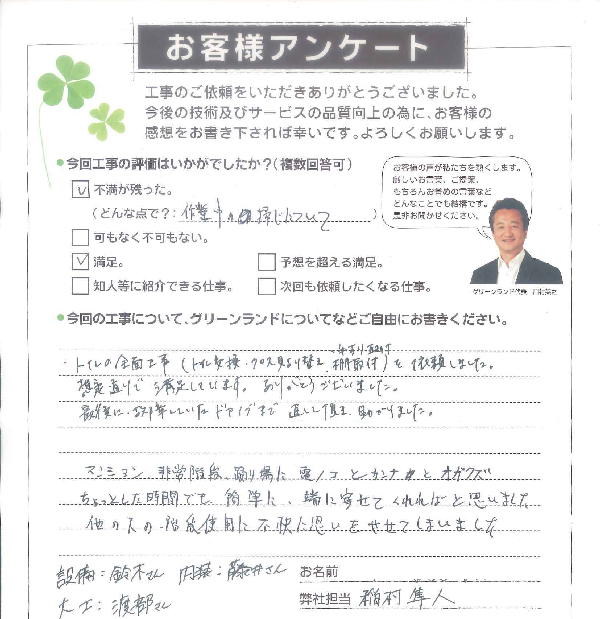 お客様アンケート
工事のご依頼をいただきありがとうございました。
今後の技術及びサービスの品質向上の為に、お客様の
感想をお書き下されば幸いです。よろしくお願いします。
•今回工事の評価はいかがでしたか?(複数回答可)
不満が残った。
(どんな点で?: 作業中の 掃じについて )
可もなく不可もない。
満足。
予想を超える満足。
知人等に紹介できる仕事。
次回も依頼したくなる仕事。
お客様の声が私たちを熱くします。
厳しいお言葉、ご提案、
もちろんお褒めの言葉など
どんなことでも結構です。
是非お聞かせください。
グリーンランド代表
•今回の工事について、グリーンランドについてなどご自由にお書きください。
・トイレの全面工事(トイレ交換・クロス見より替え 棚取付)を依頼しました。
想定通りで満足しています。ありがとうございました。
最後に、故障していたドアノブまで直して頂き、助かりました。
マンション 非常階段、踊り場に 電ノコとカンナ とオガクズ
ちょっとした時間でも、簡単に、端に寄せてくれればと思いました
他の人の階段使用に不快な思いをさせてしまいました
設備:鈴木さん 内装:藤井さん
大工:渡部さん
お名前
弊社担当 稲村 隼人